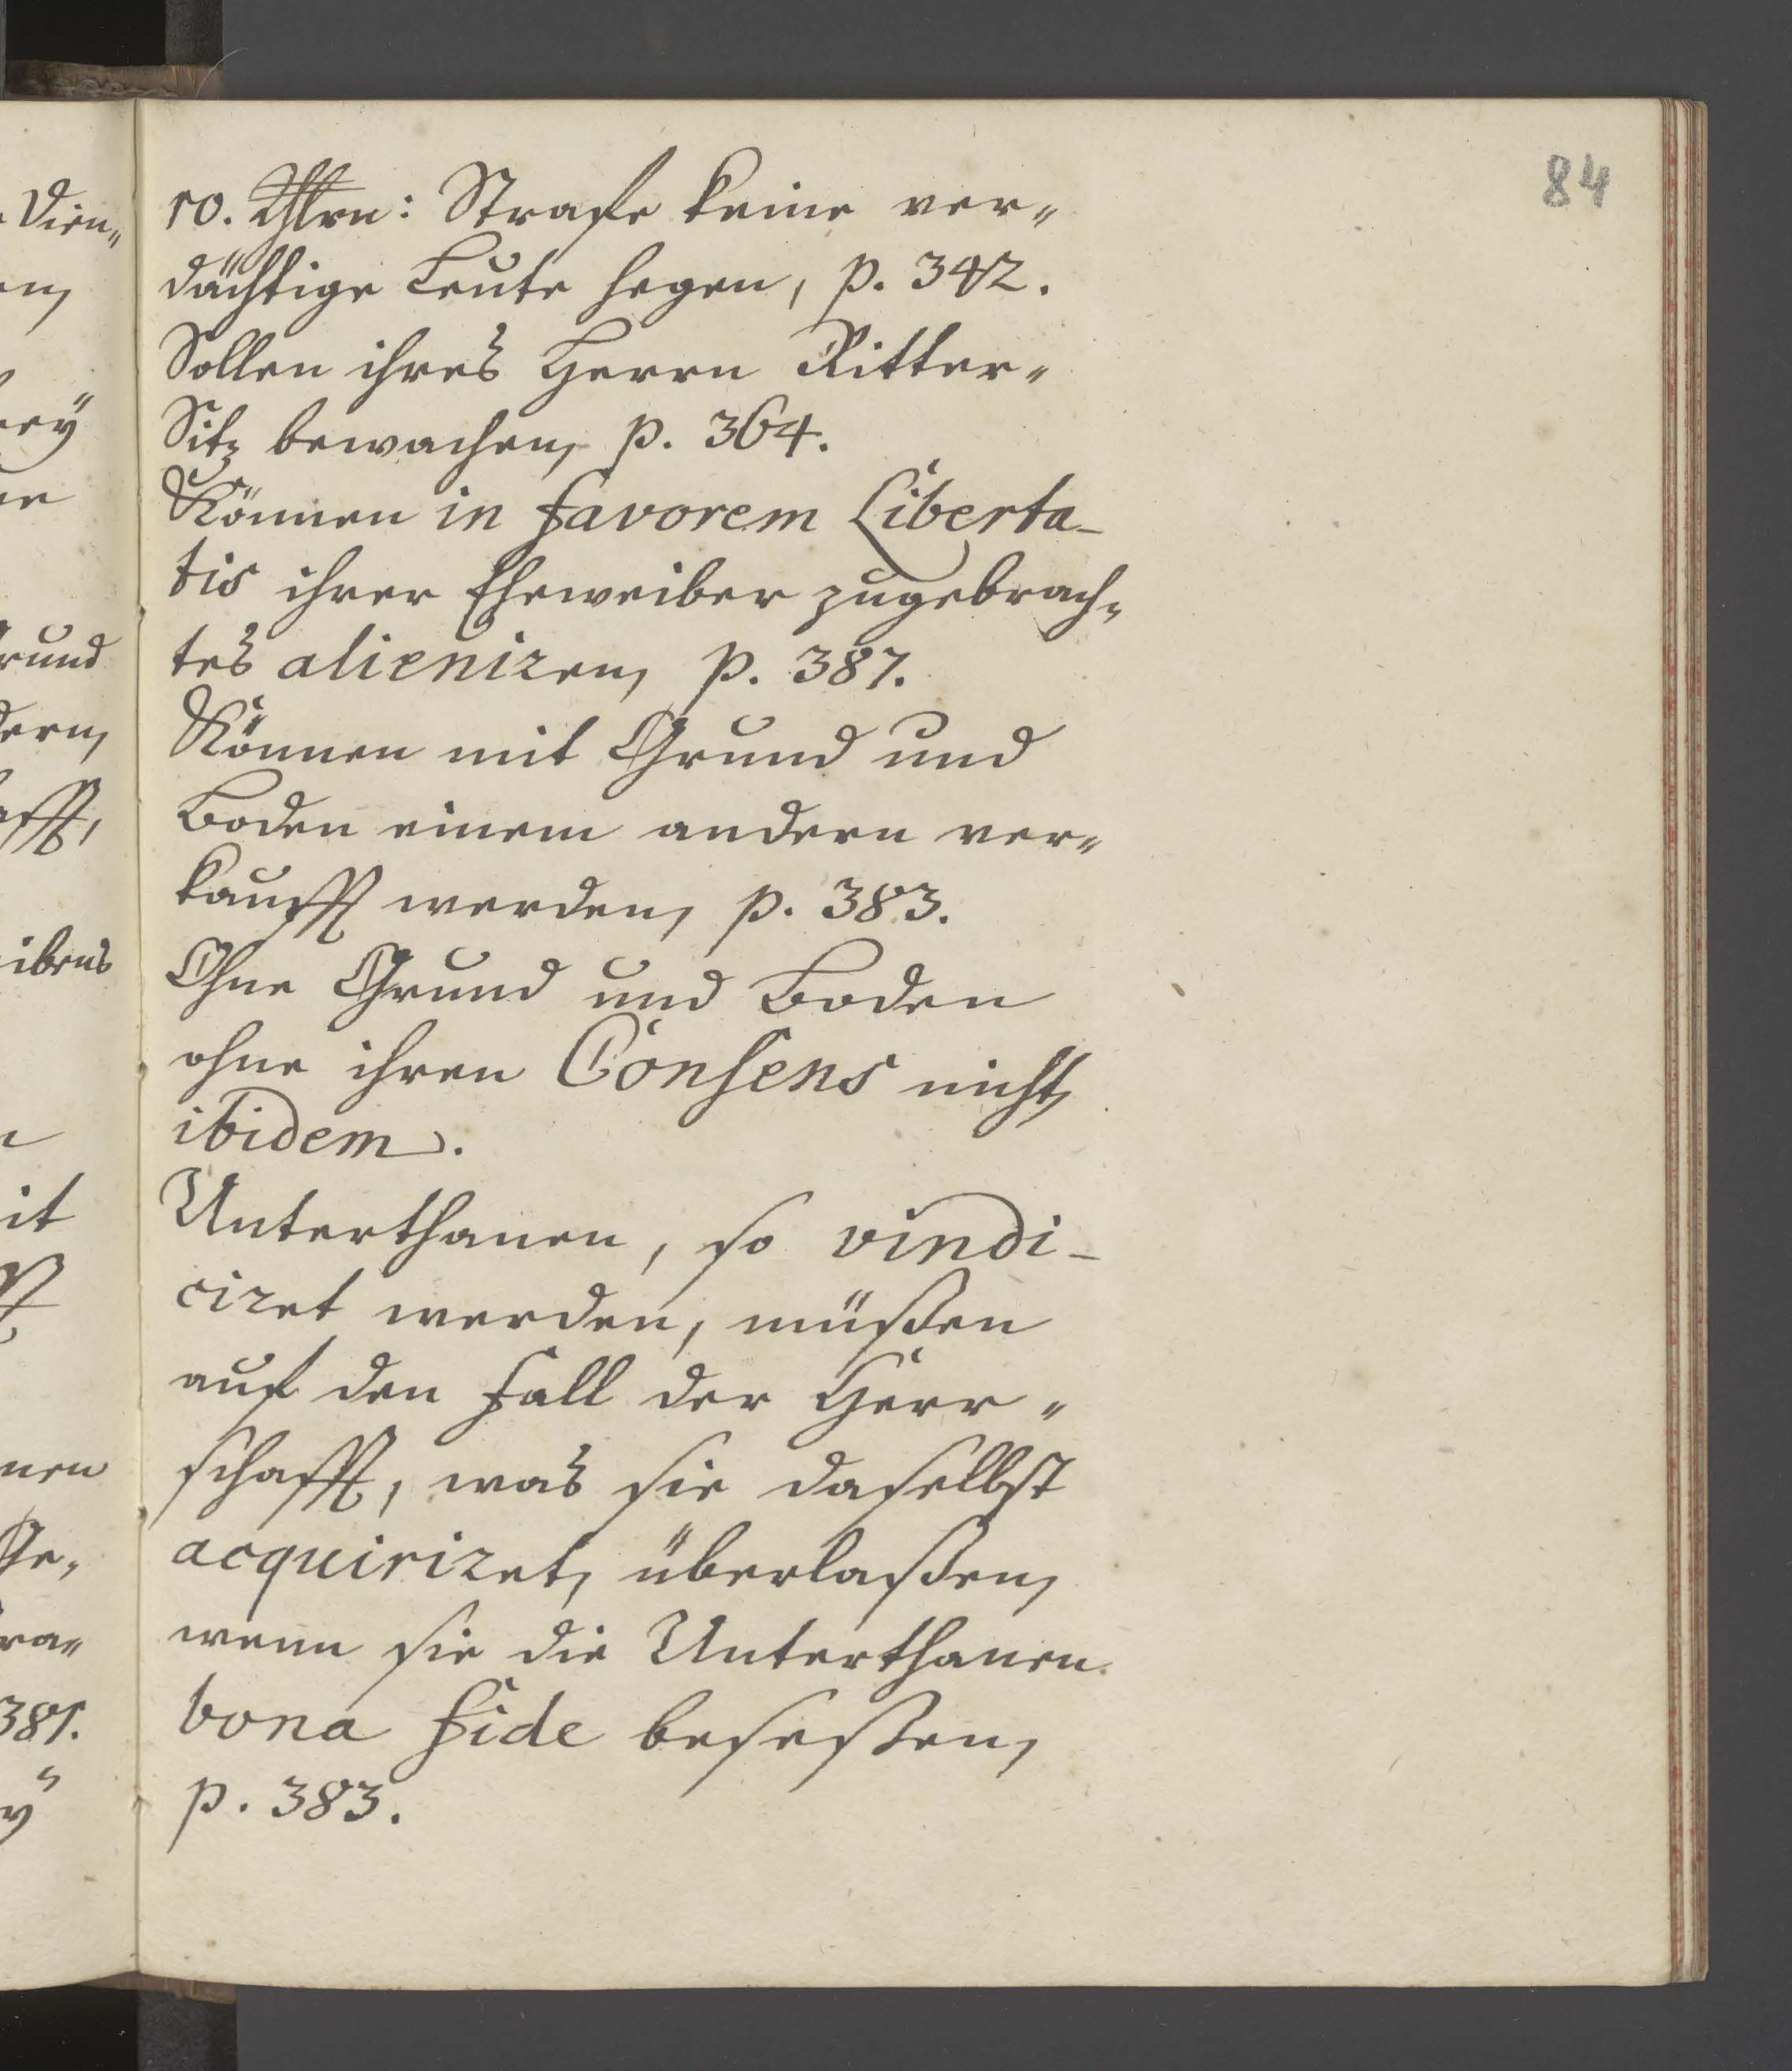 84
10. Thlrn: Strafe keine ver„
dächtige Leute hegen, p. 342.
Sollen ihres Herrn Ritter„
Sitz bewachen, p. 364.
Können in favorem Liberta-
tis ihrer Eheweiber zugebrach„
tes alieniren, p. 387.
Können mit Grund und
Boden einem andern ver„
kaufft werden, p. 383.
Ohne Grund und Boden
ohne ihren Consens nicht,
ibidem.
Unterthanen, so vindi-
ciret werden, müßen
auf den Fall der Herr„
schafft, was sie daselbst
acquiriret, überlaßen,
wenn sie die Unterthanen
bona fide beseßen,
p. 383.